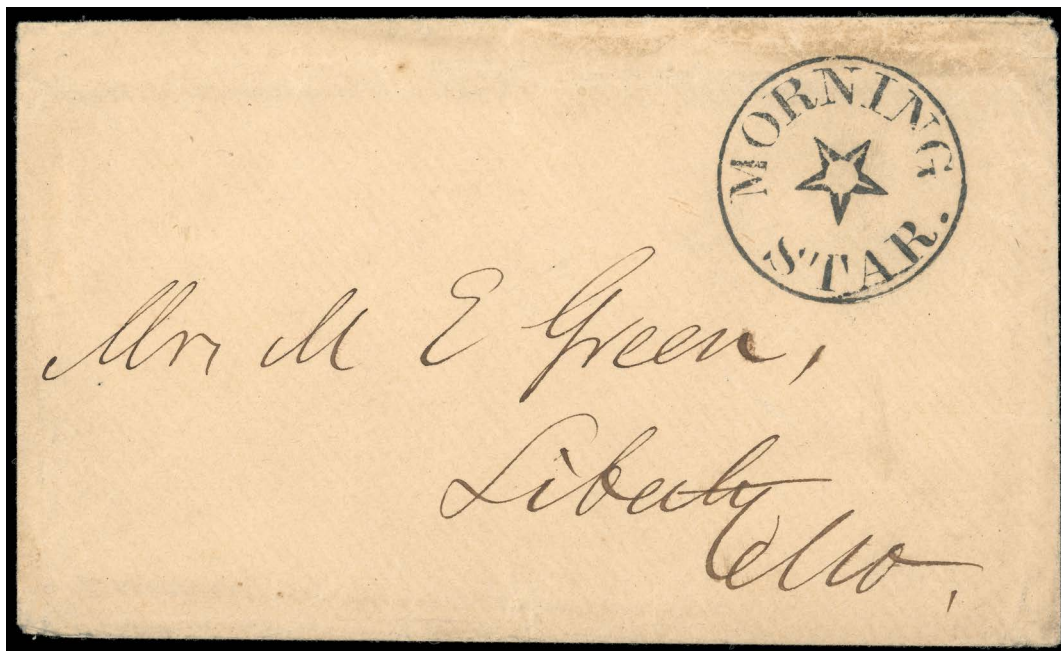 MORNING
STAR.
Mr. M E Green,
Liberty
Mo.